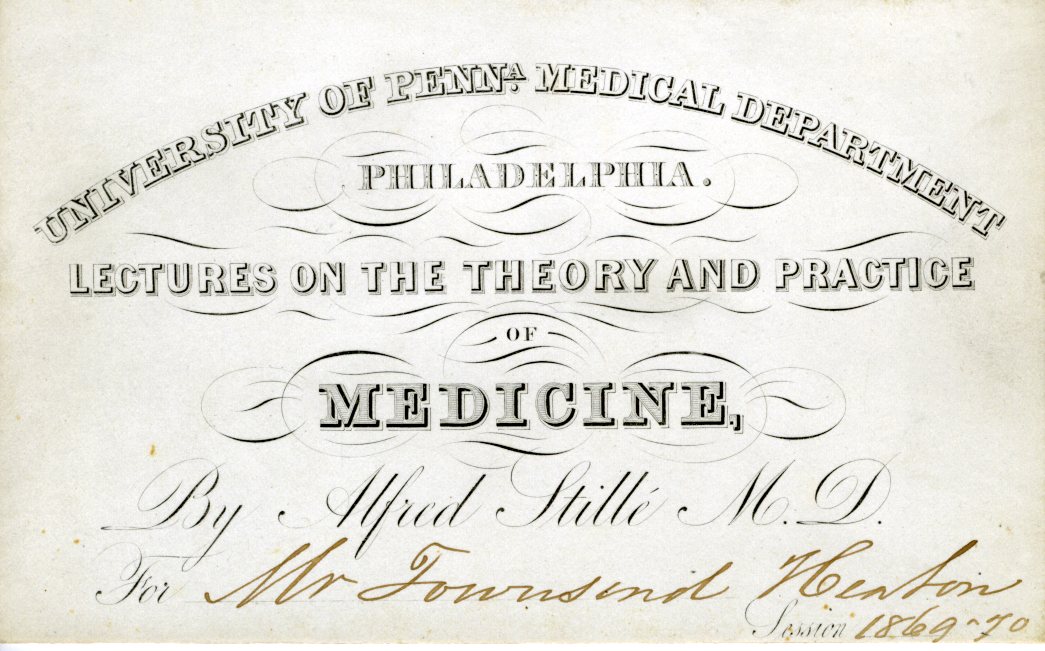 UNIVERSITY OF PENN.A MEDICAL DEPARTMENT
PHILADELPHIA.
LECTURES ON THE THEORY AND PRACTICE
OF
MEDICINE,
By Alfred Stillé M.D.
For Mr Townsend Heaton
Session 1869-70